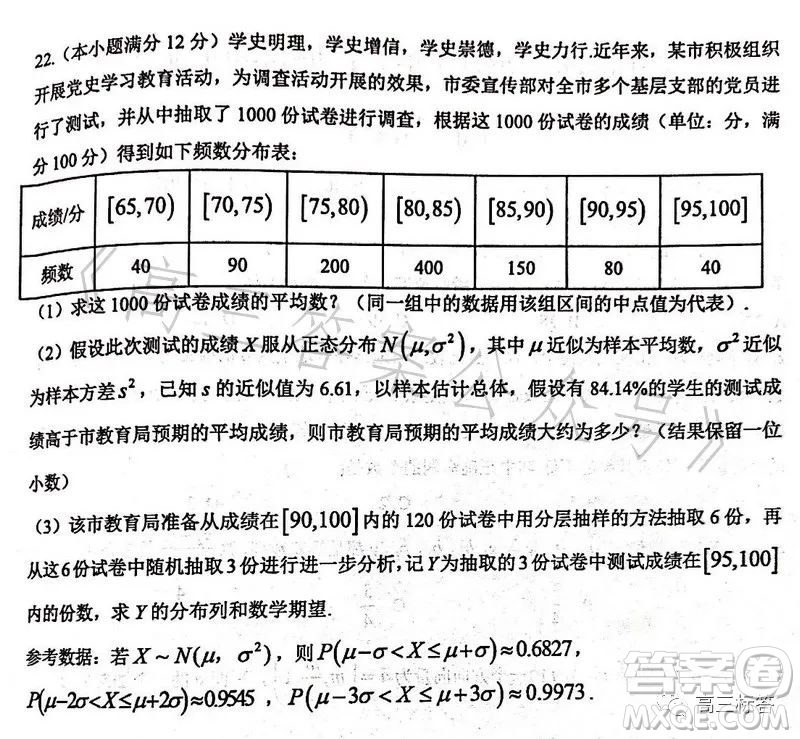 22.（本小题满分 12 分）学史明理，学史增信，学史崇德，学史力行.近年来，某市积极组织
开展党史学习教育活动，为调查活动开展的效果，市委宣传部对全市多个基层支部的党员进
行了测试，并从中抽取了 1000 份试卷进行调查，根据这 1000 份试卷的成绩（单位：分，满
分 100 分）得到如下频数分布表：
成绩/分 [65,70) [70,75) [75,80) [80,85) [85,90) [90,95) [95,100]
频数 40 90 200 400 150 80 40
（1）求这 1000 份试卷成绩的平均数？（同一组中的数据用该组区间的中点值为代表）.
（2）假设此次测试的成绩 X 服从正态分布 N(μ,σ²)，其中 μ 近似为样本平均数，σ² 近似
为样本方差 s²，已知 s 的近似值为 6.61，以样本估计总体，假设有 84.14%的学生的测试成
绩高于市教育局预期的平均成绩，则市教育局预期的平均成绩大约为多少？（结果保留一位
小数）
（3）该市教育局准备从成绩在[90,100]内的 120 份试卷中用分层抽样的方法抽取 6 份，再
从这 6 份试卷中随机抽取 3 份进行进一步分析，记 Y 为抽取的 3 份试卷中测试成绩在[95,100]
内的份数，求 Y 的分布列和数学期望.
参考数据：若 X ~ N(μ，σ²)，则 P(μ−σ<X≤μ+σ)≈0.6827，
P(μ−2σ<X≤μ+2σ)≈0.9545，P(μ−3σ<X≤μ+3σ)≈0.9973.
《高三答案公众号》
答案圈
高三标答
MXQE.COM